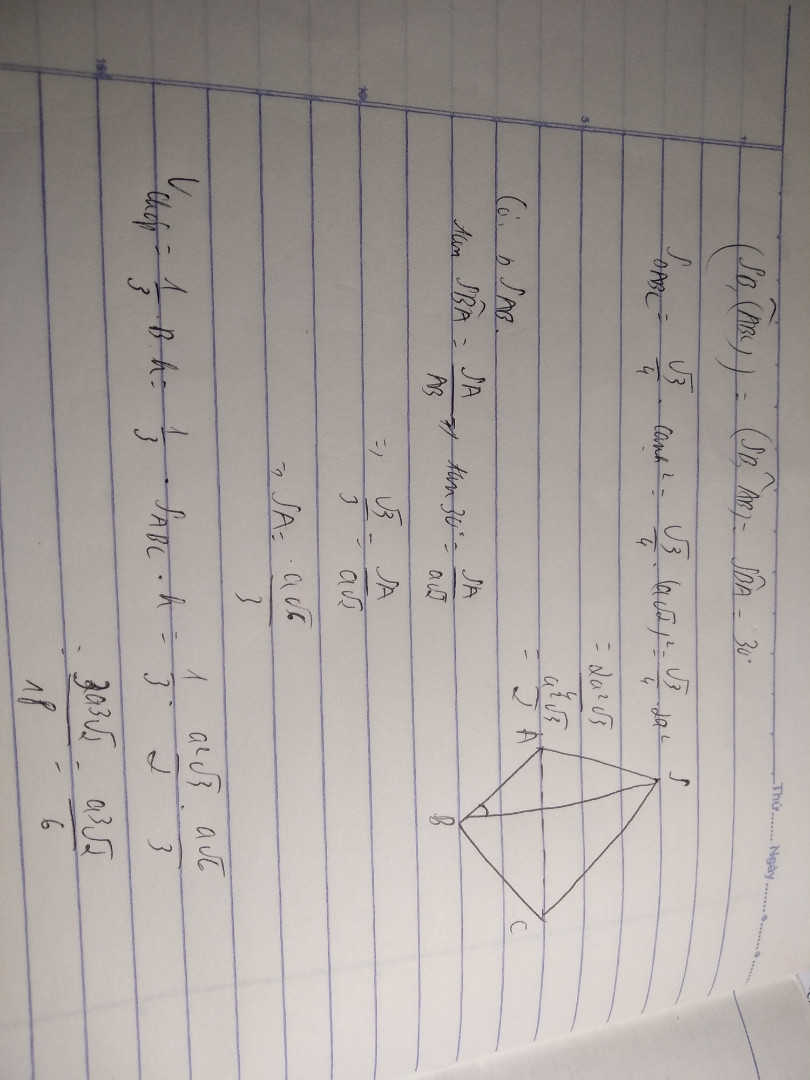 Thứ........ Ngày........
(SB, (ABC)) = (SB, AB) = SBA = 30°
S
S∆ABC = √3/4 . cạnh² = √3/4 . (a√2)² = √3/4 . 2a²
= 2a²√3/4
= a²√3/2
A
B
C
Có: ∆ SAB.
tan SBA = SA/AB => tan 30° = SA/a√2
=> √3/3 = SA/a√2
=> SA = a√6/3
Vchóp = 1/3 B.h = 1/3 . SABC . h = 1/3 . a²√3/2 . a√6/3
= 3a3√2/18 = a3√2/6
1
5
10
15